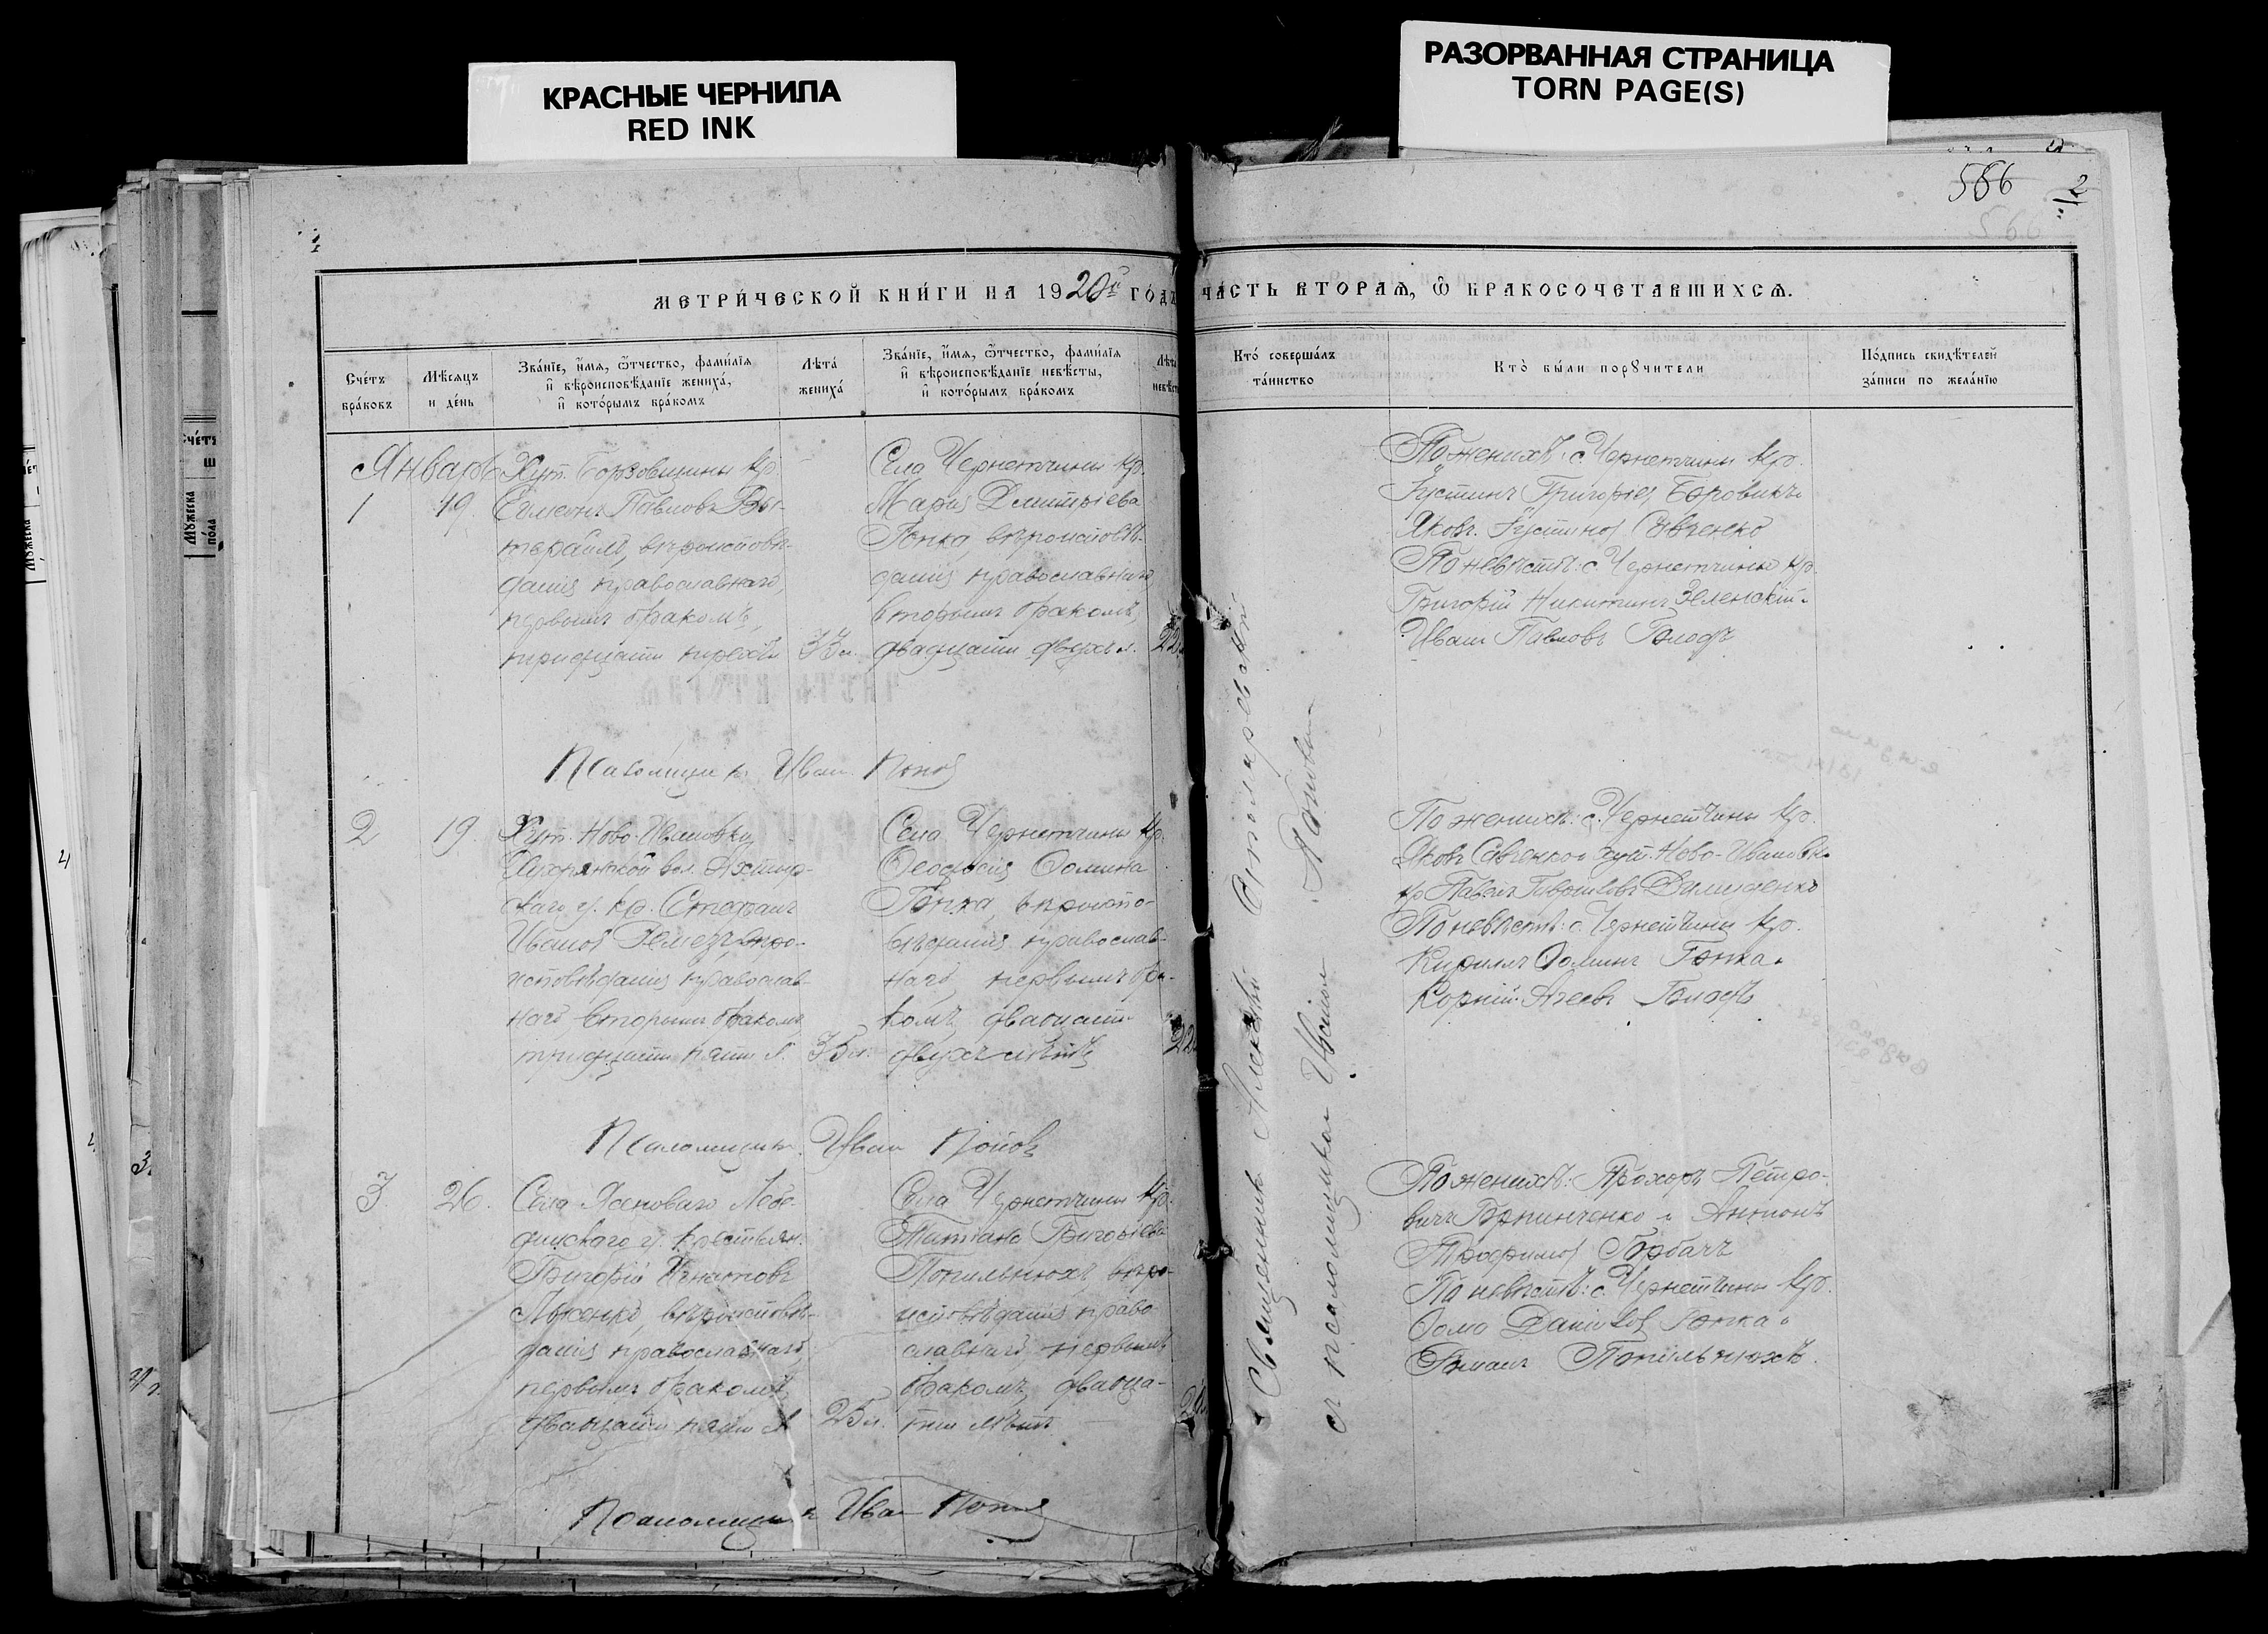 КРАСНЫЕ ЧЕРНИЛА
RED INK
РАЗОРВАННАЯ СТРАНИЦА
TORN PAGE(S)
566
2
МЕТРИ́ЧЕСКОЙ КНИ́ГИ НА 1920й ГО́ДЪ
ЧА́СТЬ ВТОРАѦ, Ѿ БРАКОСОЧЕТАВШИХСѦ.
Сче́тъ
бра́ковъ
Мѣ́сѧцъ
и де́нь
Зва́нїе, и҆́мѧ, ѻ҆́тчество, фами́лїѧ
и҆ вѣроисповѣ́данїе жениха̀,
и҆ кото́рымъ бра́комъ
Лѣ́та
жениха̀
Зва́нїе, и҆́мѧ, ѻ҆́тчество, фами́лїѧ
и҆ вѣроисповѣ́данїе невѣ́сты,
и҆ кото́рымъ бра́комъ
Кто̀ соверша́лъ
та́инство
Кто̀ бы́ли порꙋчители
По́дпись свидѣ́телей
за́писи по жела́нїю
Январь
1
19
Хут. Борзовщины кр.
Симеонъ Павловъ
вѣроисповѣ-
данія православнаго,
первымъ бракомъ,
тридцати трехъ
33 л.
Села Чернетчины кр.
Марія Димитріева
Гопка, вѣроисповѣ-
данія православнаго,
вторымъ бракомъ,
двадцати двухъ л.
22
По женихѣ: с. Чернетчины кр.
Іустинъ Григоріев Боровикъ и
Яковъ Іустинов Савченко
По невѣстѣ: с. Чернетчины кр.
Григорій Никитинъ Зеленскій и
Иванъ Павловъ Голодъ
Псаломщикъ Иван Попов
2
19.
Хут. Ново-Ивановки,
вол. Ахтыр-
скаго у. кр. Стефанъ
Ивановъ вѣро-
исповѣданія православ-
наго вторымъ бракомъ
тридцати пяти л.
35 л.
Села Чернетчины кр.
Ѳеодосія Ѳомина
Гопка, вѣроиспо-
вѣданія православ-
наго, первымъ бра-
комъ, двадцати
двухъ лѣтъ
22
По женихѣ: с. Чернетчины кр.
Яковъ Савченко и хут. Ново-Ивановки
кр. Павелъ Гавриловъ
По невѣстѣ: с. Чернетчины кр.
Кириллъ Ѳоминъ Гопка и
Корній Агеевъ Голодъ
Псаломщикъ Иван Поповъ
3.
26.
Села Ясеноваго Лебе-
динскаго у. крестьян.
Григорій Игнатовъ
вѣроисповѣ-
данія православнаго,
первымъ бракомъ,
двадцати пяти л
25 л.
Села Чернетчины кр.
Татіана Григоріева
Попильнюхъ, вѣро-
исповѣданія право
славнаго, первымъ
бракомъ, двадца-
ти лѣтъ
20
По женихѣ: Прохоръ Петро-
вичъ и Антонъ
Трофимов Горбачъ
По невѣстѣ: с. Чернетчины кр.
Ѳома Даніилов Гопка и
Романъ Попильнюхъ.
Псаломщикъ Иван Попов
Священникъ Алексѣй
съ псаломщикомъ Иваномъ Поповымъ